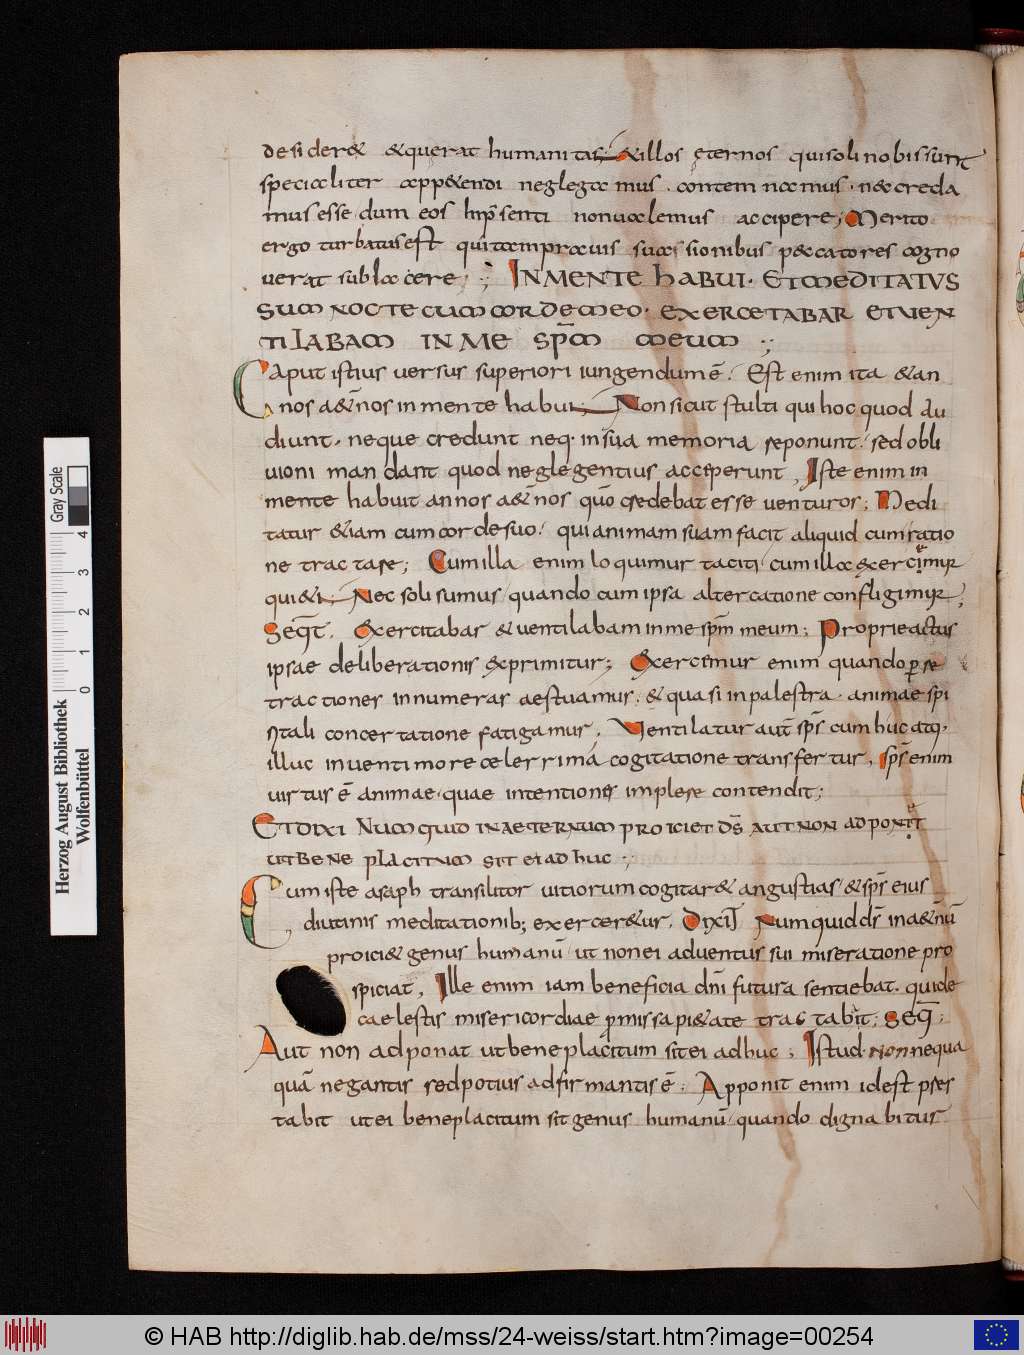 desider& &querat humanitas; &illos ęternos qui soli nobis sunt
specialiter app&endi neglegamus. contemnamus. n&creda
mus esse. dum eos hicp̄senti non ualemus accipere; Merito
ergo turbatus est qui tam prauis suasionibus peccatores cogno
uerat sub lacere; IN MENTE HABUI. ET MEDITATVS
SUM NOCTE CUM CORDE MEO. EXERCETABAR ET UEN
TILABAM IN ME SPM̄ MEUM ;
Caput istius uersus superiori iungendum ē. Est enim ita & an
nos a&̄nos in mente habui; Non sicut stulti qui hoc quod au
diunt. neque credunt neq. in sua memoria reponunt. sed obli
uioni mandant quod neglegentius acceperunt, Iste enim in
mente habuit annos a&̄nos quō credebat esse uenturos; Medi
tatur &iam cum corde suo. qui animam suam facit aliquid cum ratio
ne tractare; Cum illa enim loquimur taciti cum illa exercemur
qui&i; Nec soli sumus quando cum ipsa altercatione confligimur;
Seqt̄. Exercitabar & uentilabam in me spm̄ meum; Proprie actus
ipsae deliberationis exprimitur; Exercemur enim quando per se
tractiones innumeras aestuamus. & quasi in palestra. animae spi
ritali concertatione fatigamur. Uentilatur aut̄ sps̄ cum huc atq.
illuc in uenti more celerrimá cogitatione transfertur, sps̄ enim
uirtus ē animae. quae intentiones implere contendit;
ET DIXI NUMQUID IN AETERNUM PROICIET DS̄ AUT NON ADPONET
UT BENE PLACITUM SIT EI ADHUC ;
Cum iste asaph transilitor uitiorum cogitar& angustias & sps̄ eius
diutinis meditationib; exercer&ur, Dixit Numquid ds̄ in a&̄nū
proici& genus humanū ut non ei aduentus sui miseratione pro
spiciat, Ille enim iam beneficia dn̄i futura sentiebat. qui de
caelestis misericordiae promissa pi&ate tractabit; Seq̄;
Aut non adponat ut beneplacitum sit ei adhuc; Istud. non nequa
quā negantis sed potius adfirmantis ē; Apponit enim id est pres
tabit ut ei beneplacitum sit genus humanū quando dignabitur
Herzog August Bibliothek
Wolfenbüttel
0 1 2 3 4
Gray Scale
© HAB http://diglib.hab.de/mss/24-weiss/start.htm?image=00254